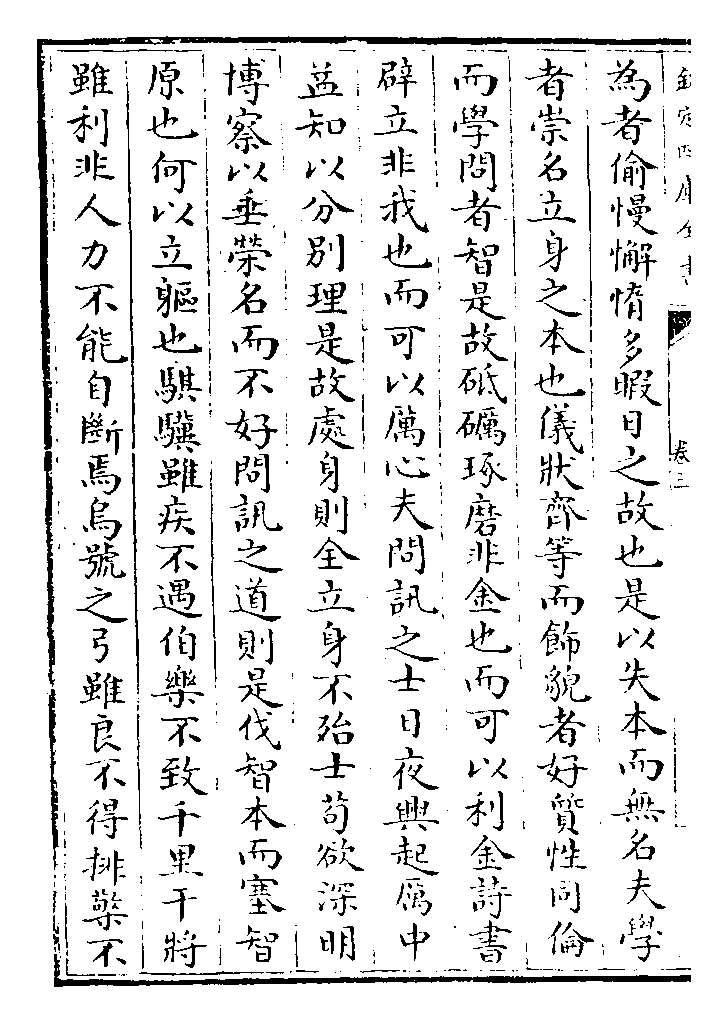 欽定四庫全書
卷三
為者偷慢懈惰多暇日之故也是以失本而無名夫學
者崇名立身之本也儀狀齊等而飾貌者好質性同倫
而學問者智是故砥礪琢磨非金也而可以利金詩書
辟立非我也而可以厲心夫問訊之士日夜興起厲中
益知以分別理是故處身則全立身不殆士茍欲深明
博察以垂榮名而不好問訊之道則是伐智本而塞智
原也何以立軀也騏驥雖疾不遇伯樂不致千里干將
雖利非人力不能自斷焉烏號之弓雖良不得排檠不